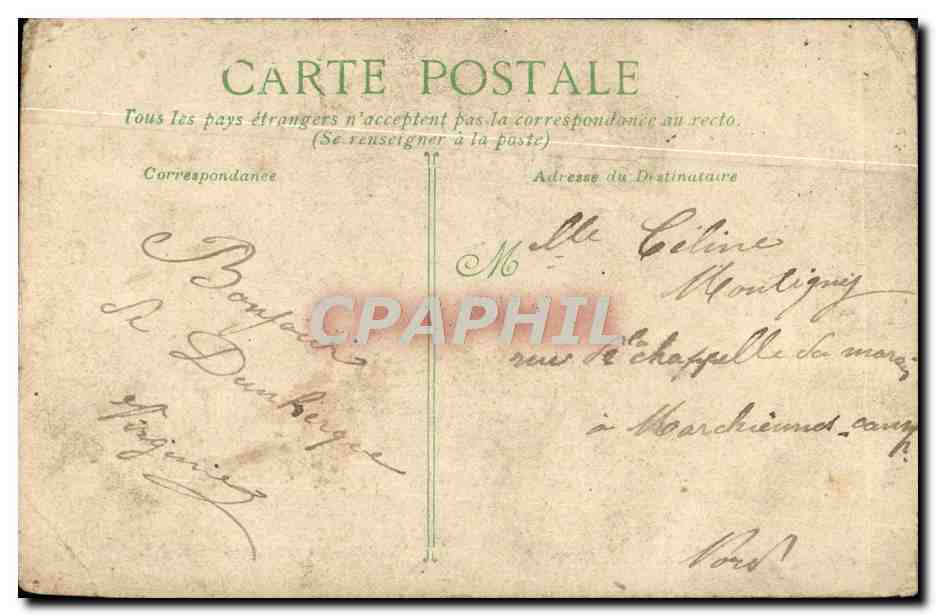 CARTE POSTALE
Tous les pays étrangers n'acceptent pas la correspondance au recto.
(Se renseigner à la poste)
Correspondance
Bonjour
de Dunkerque
Virginie
Adresse du Destinataire
Mlle Céline
Montigny
rue de la chappelle du marais
à Marchiennes-camp.
Nord
CPAPHIL